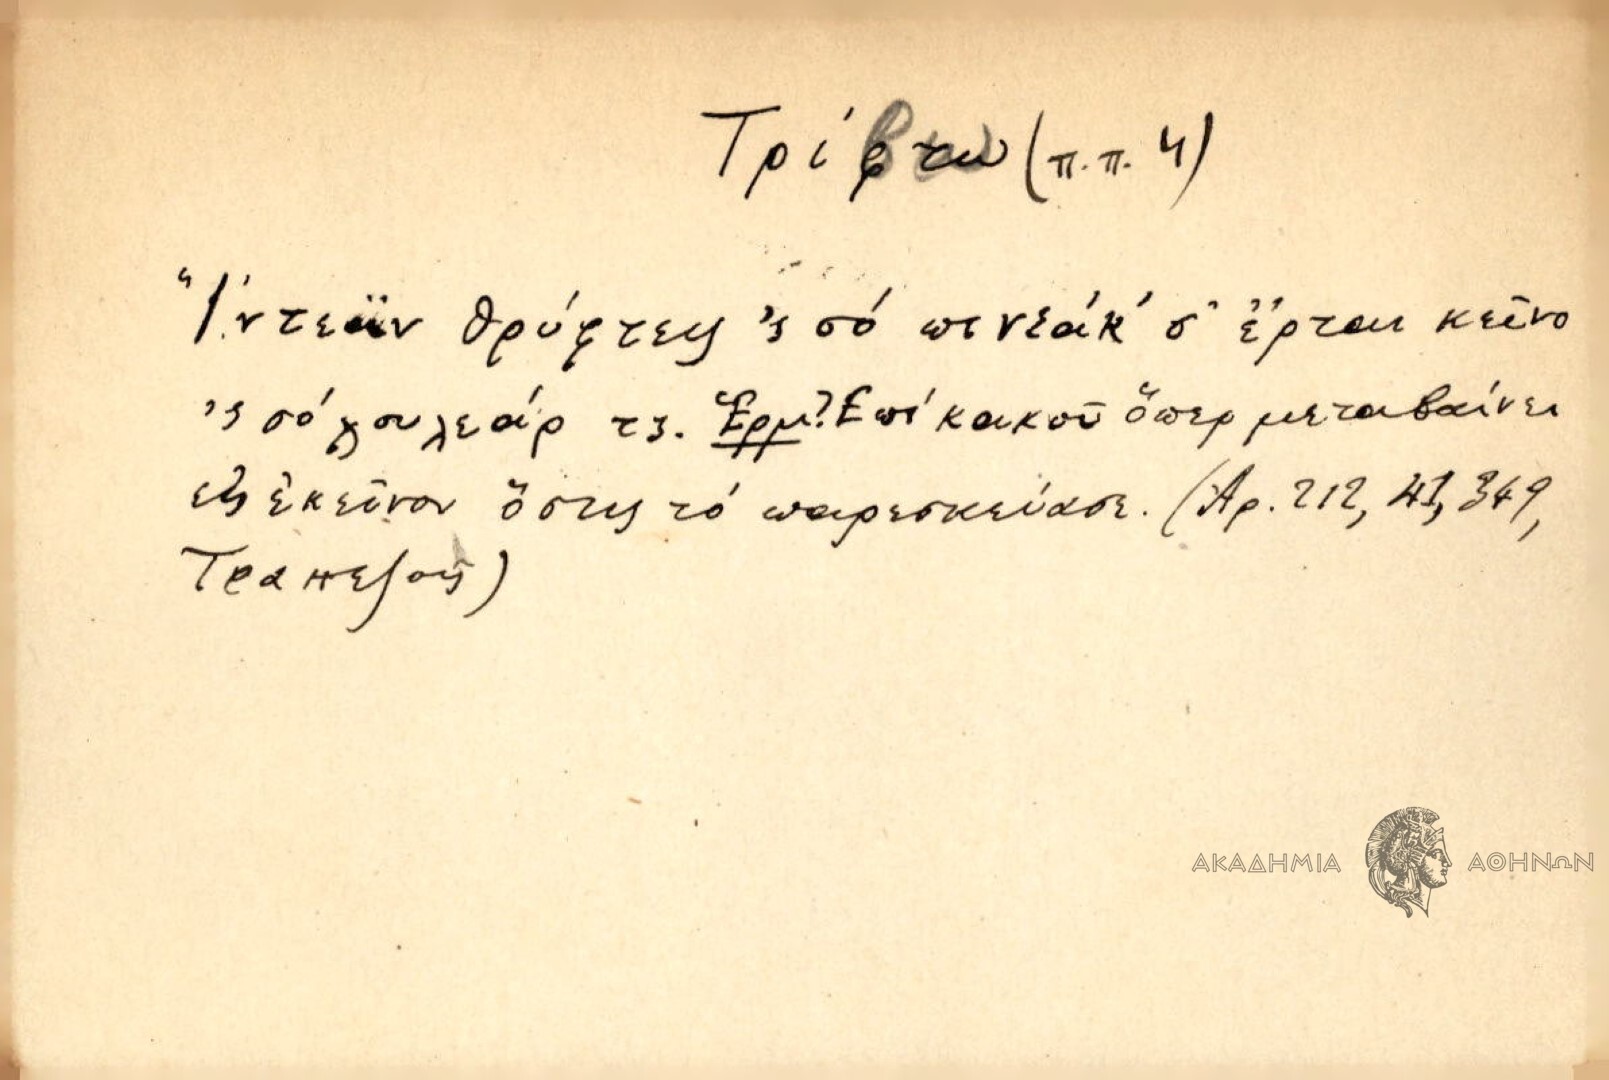 Τρίφτω (π.π. 4)
"Ἴντεἄν θρύφτεις 'ς σό πινεάκ' σ' ἔρται κεῖνο
'ς σό χουλεάρ τς. Ἑρμ: Ἐπί κακοῦ ὅπερ μεταβαίνει
εἰς ἐκεῖνον ὅστις τό παρεσκεύασε. (Ἀρ. 212, 41, 349,
Τραπεζοῦς)
ΑΚΑΔΗΜΙΑ ΑΘΗΝΩΝ